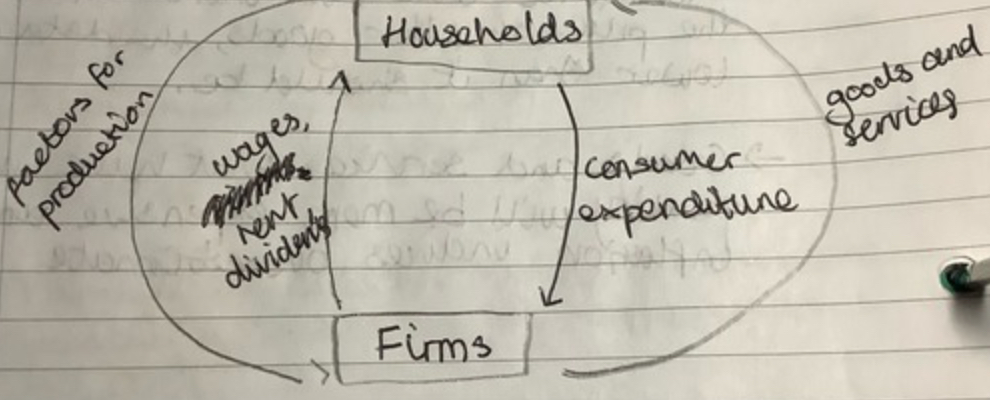 Households
factors for
production
wages,
rent
dividends
consumer
expenditure
goods and
services
Firms